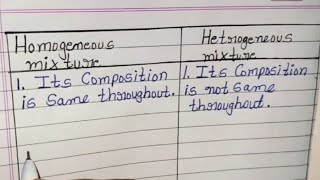 Homogeneous
mixture
Hetrogeneous
mixture
1. Its Composition
is Same throughout.
1. Its Composition
is not Same
throughout.